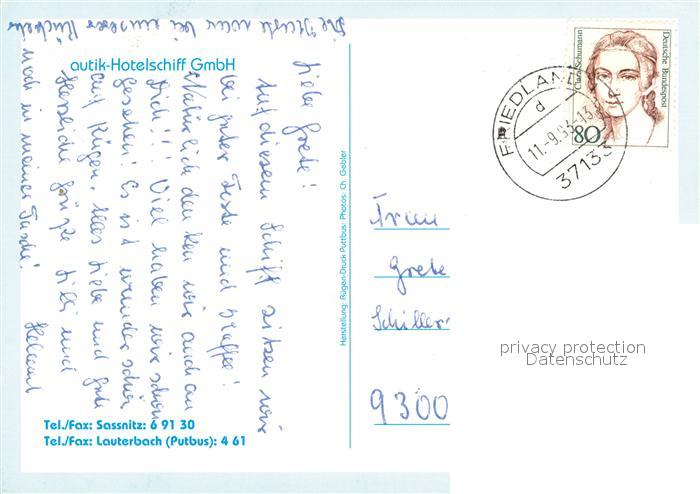 Die Karte war bei unserer Rückkehr
noch in meiner Tasche!
autik-Hotelschiff GmbH
Liebe Grete!
Auf diesem Schiff sitzen wir
bei guter Torte und Kaffee!
Natürlich denken wir auch an
Dich!!! Viel haben wir schon
gesehen! Es ist wunderschön
auf Rügen. Alles Liebe und Gute
Herzliche Grüße Lilli und
Helmut
Tel./Fax: Sassnitz: 6 91 30
Tel./Fax: Lauterbach (Putbus): 4 61
Herstellung: Rügen-Druck Puttbus · Photos: Ch. Gebler
Clara Schumann
Deutsche Bundespost
80
FRIEDLAND
d
11.-9.93-13
37133
Frau
Grete
Schiller
9300
privacy protection
Datenschutz